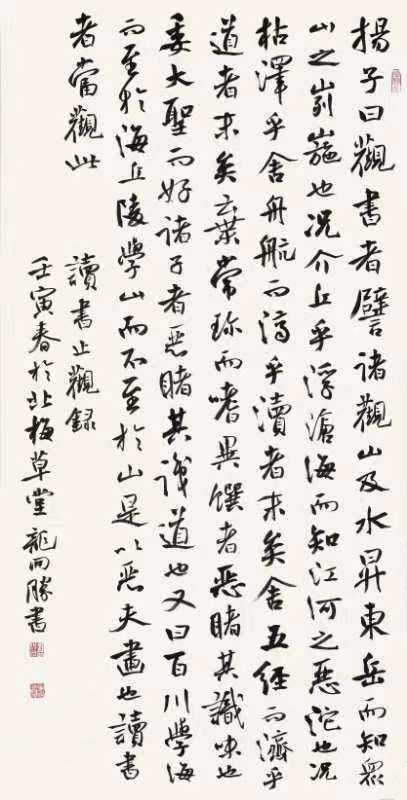 揚子曰觀書者譬諸觀山及水昇東岳而知眾
山之峛崺也況介丘乎浮滄海而知江河之惡沱也況
枯澤乎舍舟航而濟乎瀆者末矣舍五經而濟乎
道者末矣棄常珍而嗜異饌者惡睹其識味也
委大聖而好諸子者惡睹其識道也又曰百川學海
而至於海丘陵學山而不至於山是以惡夫畫也讀書
者當觀此
讀書止觀錄
壬寅春於北梅草堂龍而勝書